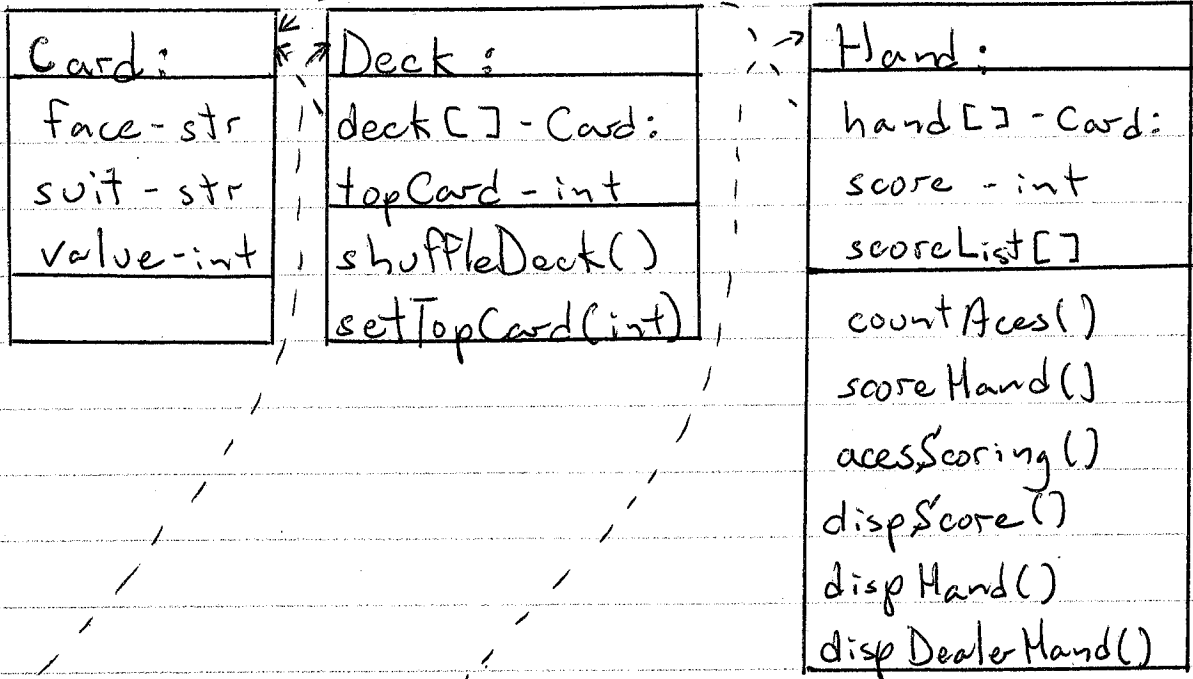 Card:
face-str
suit - str
value-int
Deck:
deck[] - Card:
topCard - int
shuffleDeck()
setTopCard(int)
Hand:
hand[] - Card:
score - int
scoreList[]
countAces()
scoreHand()
acesScoring()
dispScore()
dispHand()
dispDealerHand()